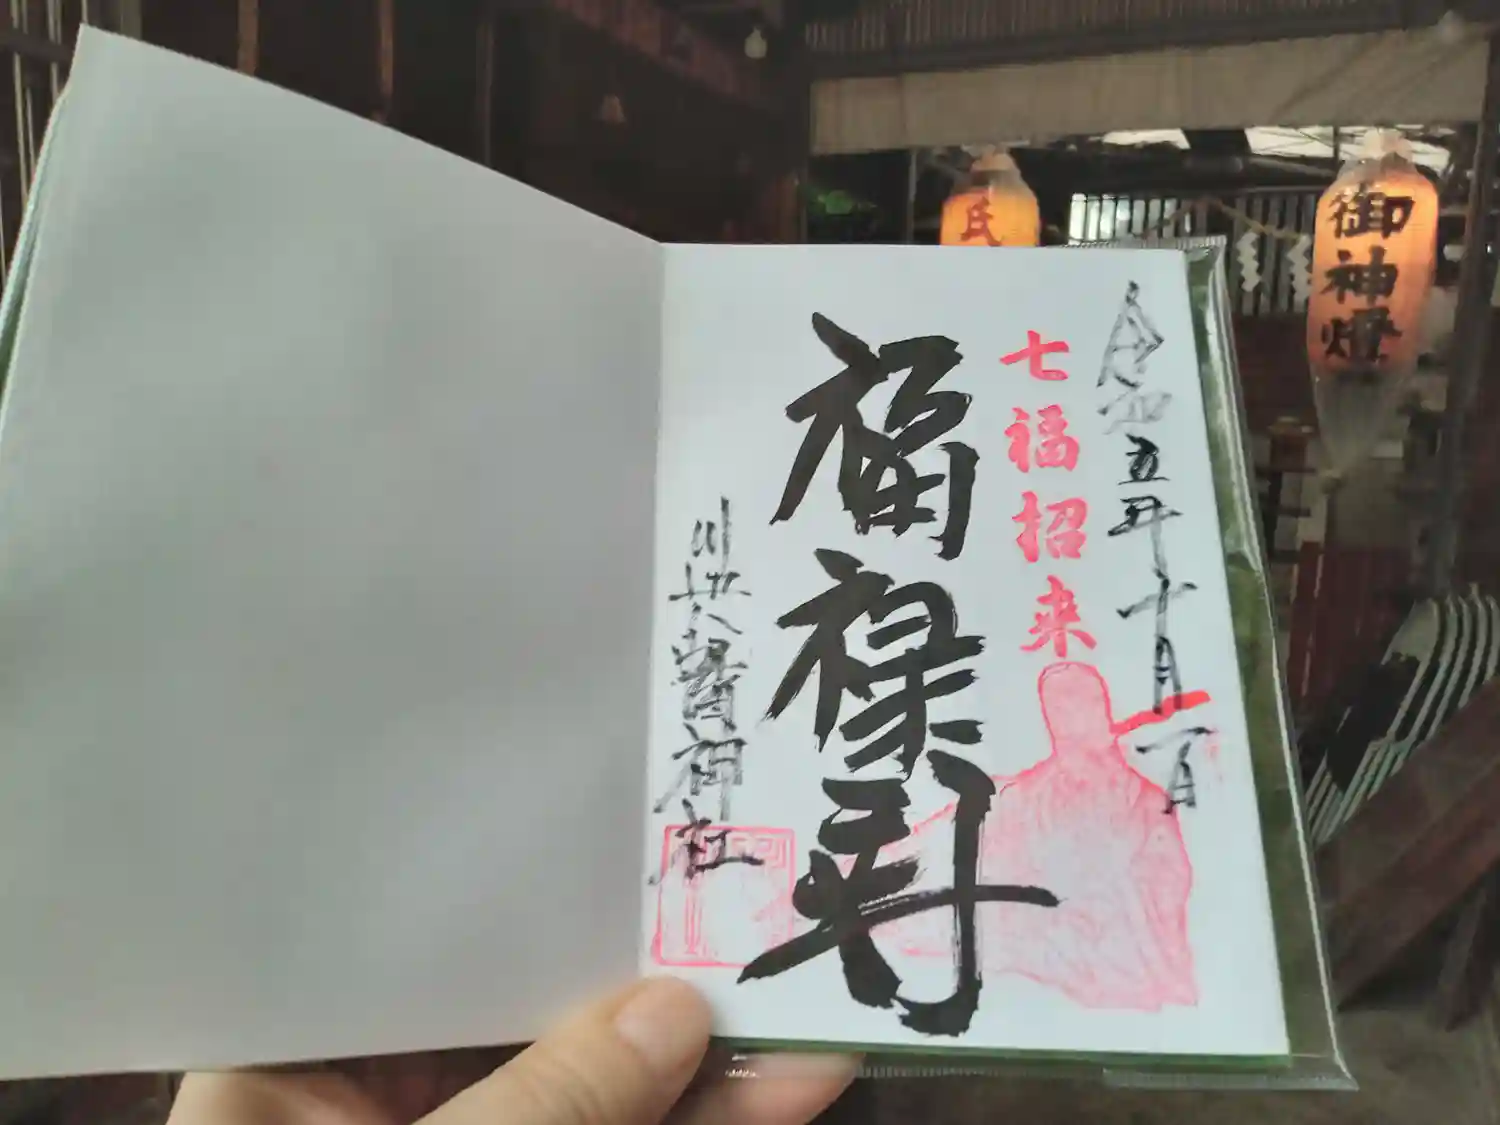 令和五年十月一日
七福招来
福禄寿
川越八幡神社
氏
御神燈